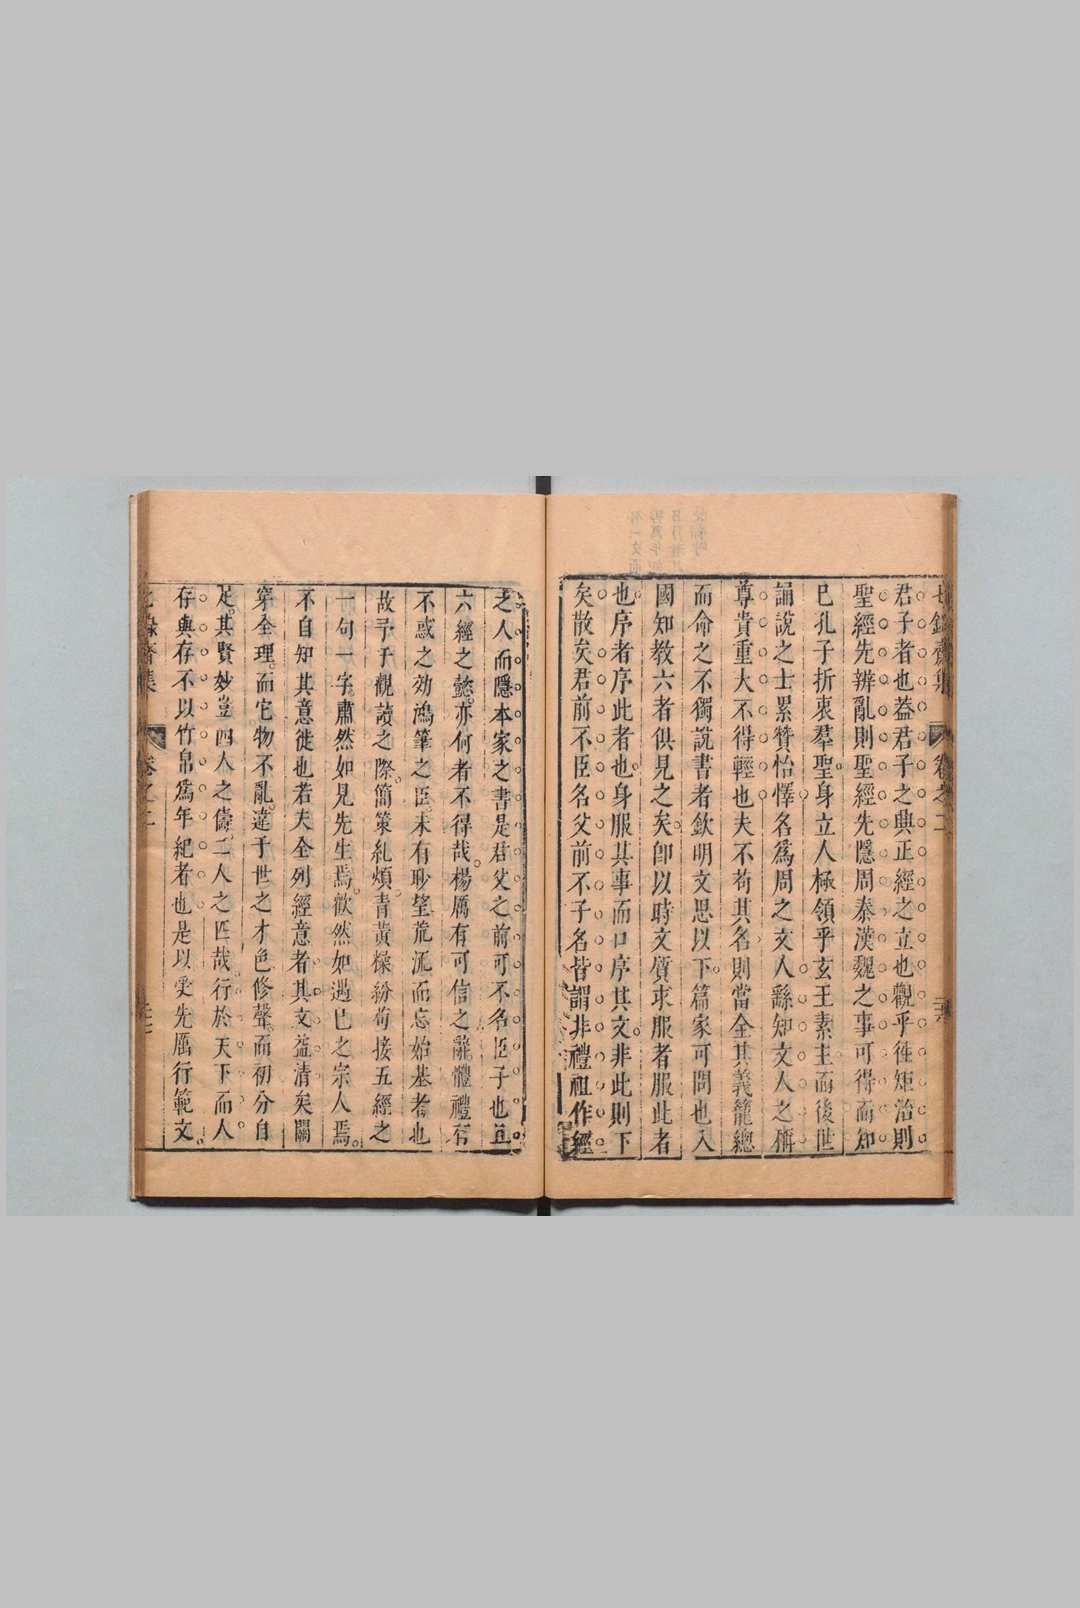 七錄齋集 卷之二 二六
君子者也葢君子之與正經之立也觀乎徃矩治則
聖經先辨亂則聖經先隱周秦漢魏之事可得而知
已孔子折衷羣聖身立人極領乎玄王素主而後世
誦說之士累贊怡懌名爲周之文人繇知文人之稱
尊貴重大不得輕也夫不苟其名則當全其義籠總
而命之不獨說書者欽明文思以下篇家可問也入
國知教六者俱見之矣卽以時文質求服者服此者
也序者序此者也身服其事而口序其文非此則下
矣散矣君前不臣名父前不子名皆謂非禮祖作經
之人而隱本家之書是君父之前可不名臣子也且
六經之懿亦何者不得哉楊厲有可信之辭體禮有
不惑之効鴻筆之臣未有耿望荒流而忘始基者也
故予于觀讀之際簡策糺煩青黃糅紛苟接五經之
一句一字肅然如見先生焉歡然如遇巳之宗人焉
不自知其意徙也若夫全列經意者其文益清矣闢
穿全理而它物不亂違于世之才色修聲而初分自
足其賢妙豈四人之儔二人之匹哉行於天下而人
存與存不以竹帛爲年紀者也是以受先厲行範文
七錄齋集 卷之二 二七